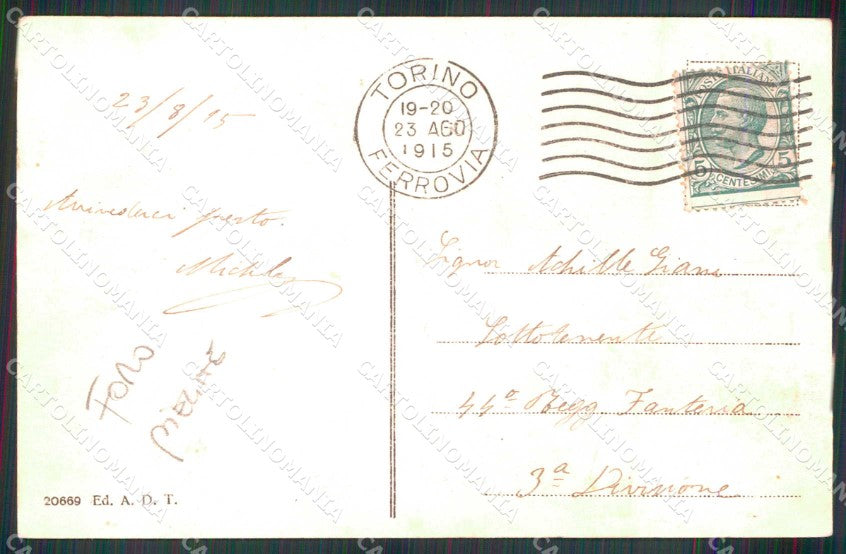 23/8/15
Arrivederci presto.
TORINO
19-20
23 AGO
1915
FERROVIA
ITALIANE
5 CENTESIMI 5
Signor Achille Giani
Sottotenente
44ª Regg Fanteria
3ª Divisione
FORO
20669 Ed. A. D. T.
CARTOLINOMANIA